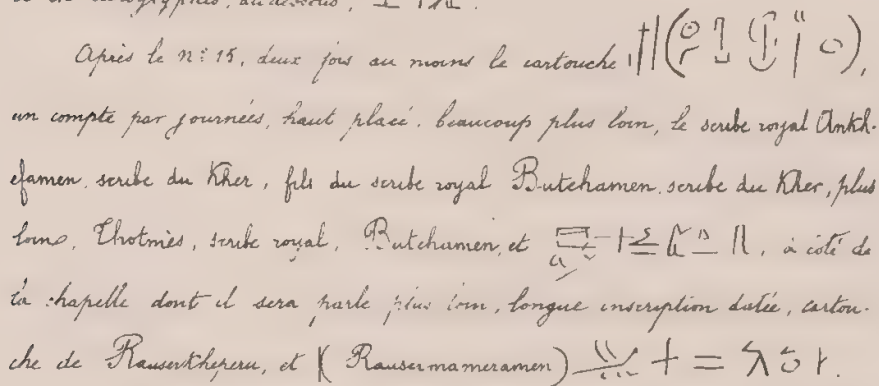 et en hiéroglyphes, au dessous,
Après le n° 15, deux fois au moins le cartouche
un compte par journées, haut placé. beaucoup plus loin, le scribe royal Ankh-
efamen, scribe du Kher, fils du scribe royal Butehamen, scribe du Kher, plus
loin, Thotmès, scribe royal, Butehamen, et à côté de
la chapelle dont il sera parlé plus loin, longue inscription datée, cartou-
che de Rauserkheperu, et (Rausermameramen)